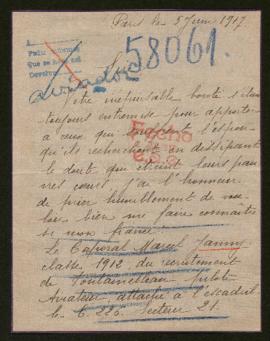 Paris le 5 Juin 1917.
58061.
Que se
Votre inépuisable bonté s'étant
toujours entremise pour apporter
à ceux qui
qu'ils recherchent en dissipant
le doute que étreint leurs pau-
vres cœurs, j'ai l'honneur
de prier humblement de vou-
loir bien me faire connaître
si mon fiancé
Le Caporal Marcel Janny
classe 1912 du recrutement
de Fontainebleau pilote
Aviateur, attaché à l'escadrille
C. 226. Secteur 21.